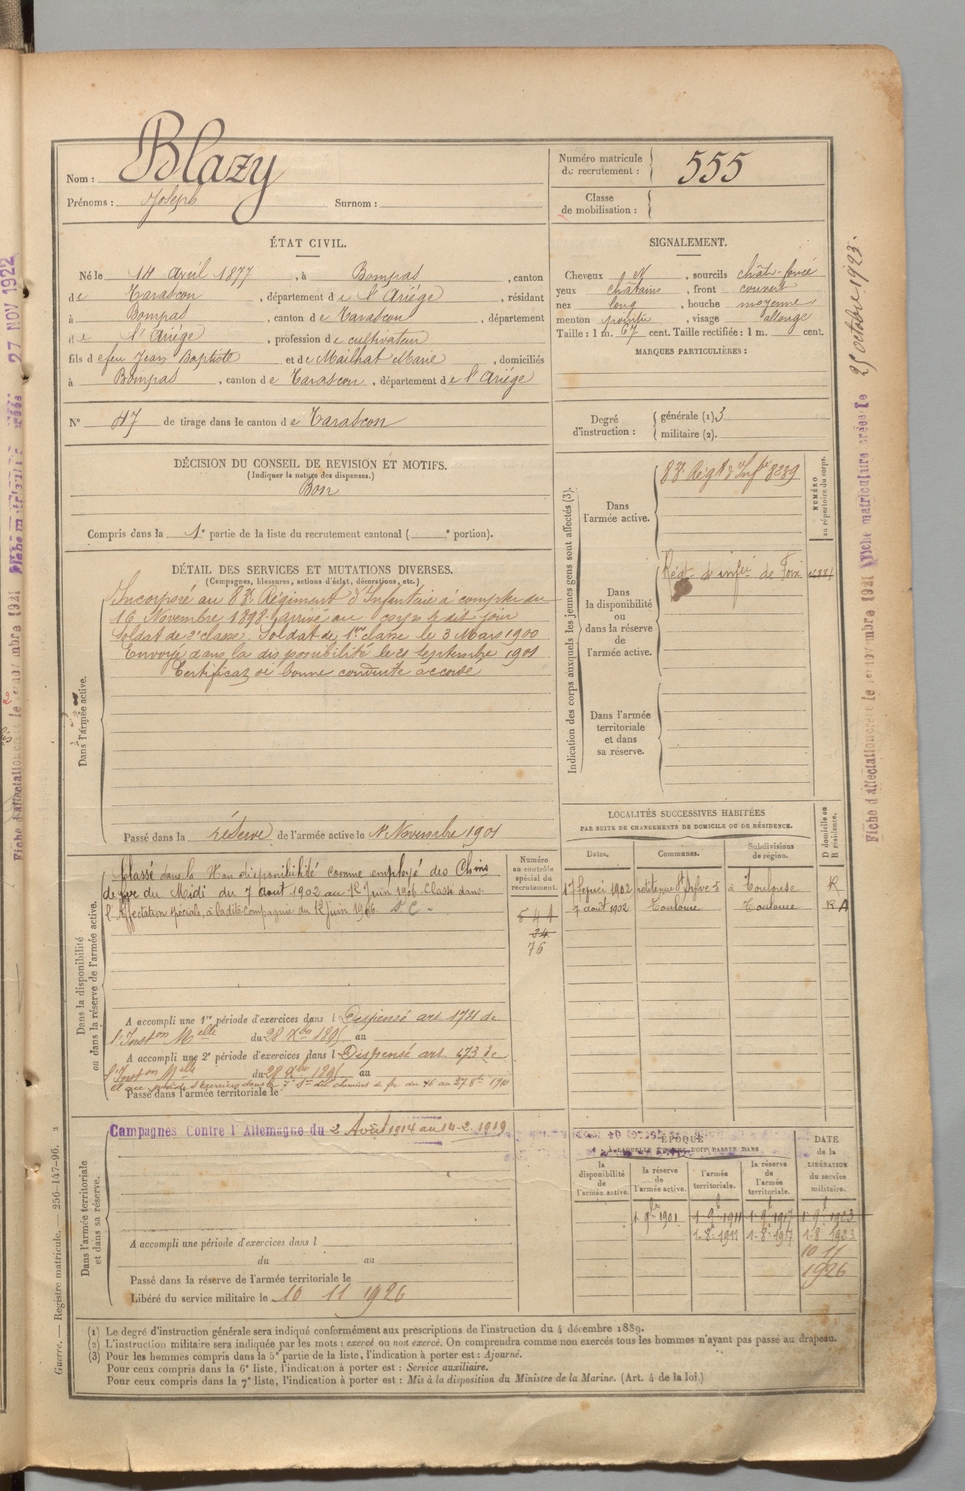 Nom : Blazy
Prénoms : Joseph Surnom :
Numéro matricule de recrutement : 555
Classe de mobilisation :
ÉTAT CIVIL.
Né le 14 avril 1877, à Bompas, canton
de Tarascon, département de l'Ariége, résidant
à Bompas, canton de Tarascon, département
de l'Ariége, profession de cultivateur
fils de feu Jean Baptiste et de Mailhat Marie, domiciliés
à Bompas, canton de Tarascon, département de l'Ariége
N° 47 de tirage dans le canton de Tarascon
SIGNALEMENT.
Cheveux, sourcils chât. foncé
yeux châtains, front couvert
nez long, bouche moyenne
menton pointu, visage allongé
Taille : 1 m. 67 cent. Taille rectifiée : 1 m. cent.
MARQUES PARTICULIÈRES :
Degré d'instruction : générale (1) 3
militaire (2).
DÉCISION DU CONSEIL DE REVISION ET MOTIFS.
(Indiquer la nature des dispenses.)
Bon
Compris dans la 1e partie de la liste du recrutement cantonal ( e portion).
DÉTAIL DES SERVICES ET MUTATIONS DIVERSES.
(Campagnes, blessures, actions d'éclat, décorations, etc.)
Dans l'armée active.
Incorporé au 83e Régiment d'Infanterie à compter du
16 Novembre 1898, arrivé au corps le dit jour
soldat de 2e classe. Soldat de 1ère classe le 3 Mars 1900
Envoyé dans la disponibilité le 21 septembre 1901
Certificat de bonne conduite accordé
Passé dans la réserve de l'armée active le 1r Novembre 1901
Indication des corps auxquels les jeunes gens sont affectés (3).
NUMÉRO au répertoire du corps.
Dans l'armée active. 83e Régt d'Infie 8239
Dans la disponibilité ou dans la réserve de l'armée active. Régt d'infie de Foix
Dans l'armée territoriale et dans sa réserve.
LOCALITÉS SUCCESSIVES HABITÉES
PAR SUITE DE CHANGEMENTS DE DOMICILE OU DE RÉSIDENCE.
Dates. Communes. Subdivisions de région. D domicile ou R résidence.
1902 à Toulouse R
7 août 1902 Toulouse Toulouse R A
Dans la disponibilité ou dans la réserve de l'armée active.
Numéro au contrôle spécial du recrutement.
541
34
76
Classé dans la Non disponibilité comme employé des Chins
de fer du Midi du 7 août 1902 au 12 Juin 1906 Classé dans
l'Affectation spéciale, à la dite Compagnie du 12 juin 1906
A accompli une 1re période d'exercices dans l Dispensé art 174 de
l'Inston Melle du 28 Xbre 1895 au
A accompli une 2e période d'exercices dans l Dispensé art 173 de
l'Inston Melle du 28 Xbre 1895 au
Passé dans l'armée territoriale le
Dans l'armée territoriale et dans sa réserve.
Campagnes Contre l'Allemagne du 2 Août 1914 au 14-2-1919
A accompli une période d'exercices dans l
du au
Passé dans la réserve de l'armée territoriale le
Libéré du service militaire le 10 11 1926
ÉPOQUE
A LAQUELLE L'HOMME DOIT PASSER DANS
la disponibilité de l'armée active. la réserve de l'armée active. l'armée territoriale. la réserve de l'armée territoriale.
DATE de la LIBÉRATION du service militaire.
1901 1-9-1911 1-9-1917 1-9-1923
1-8-1911 1-8-1917 1-8-1923
10 11
1926
(1) Le degré d'instruction générale sera indiqué conformément aux prescriptions de l'instruction du 4 décembre 1889.
(2) L'instruction militaire sera indiquée par les mots : exercé ou non exercé. On comprendra comme non exercés tous les hommes n'ayant pas passé au drapeau.
(3) Pour les hommes compris dans la 5e partie de la liste, l'indication à porter est : Ajourné.
Pour ceux compris dans la 6e liste, l'indication à porter est : Service auxiliaire.
Pour ceux compris dans la 7e liste, l'indication à porter est : Mis à la disposition du Ministre de la Marine. (Art. 4 de la loi.)
Guerre. — Registre matricule. 256-147-96.
Fiche matriculaire créée le 25 octobre 1923.
27 NOV 1922